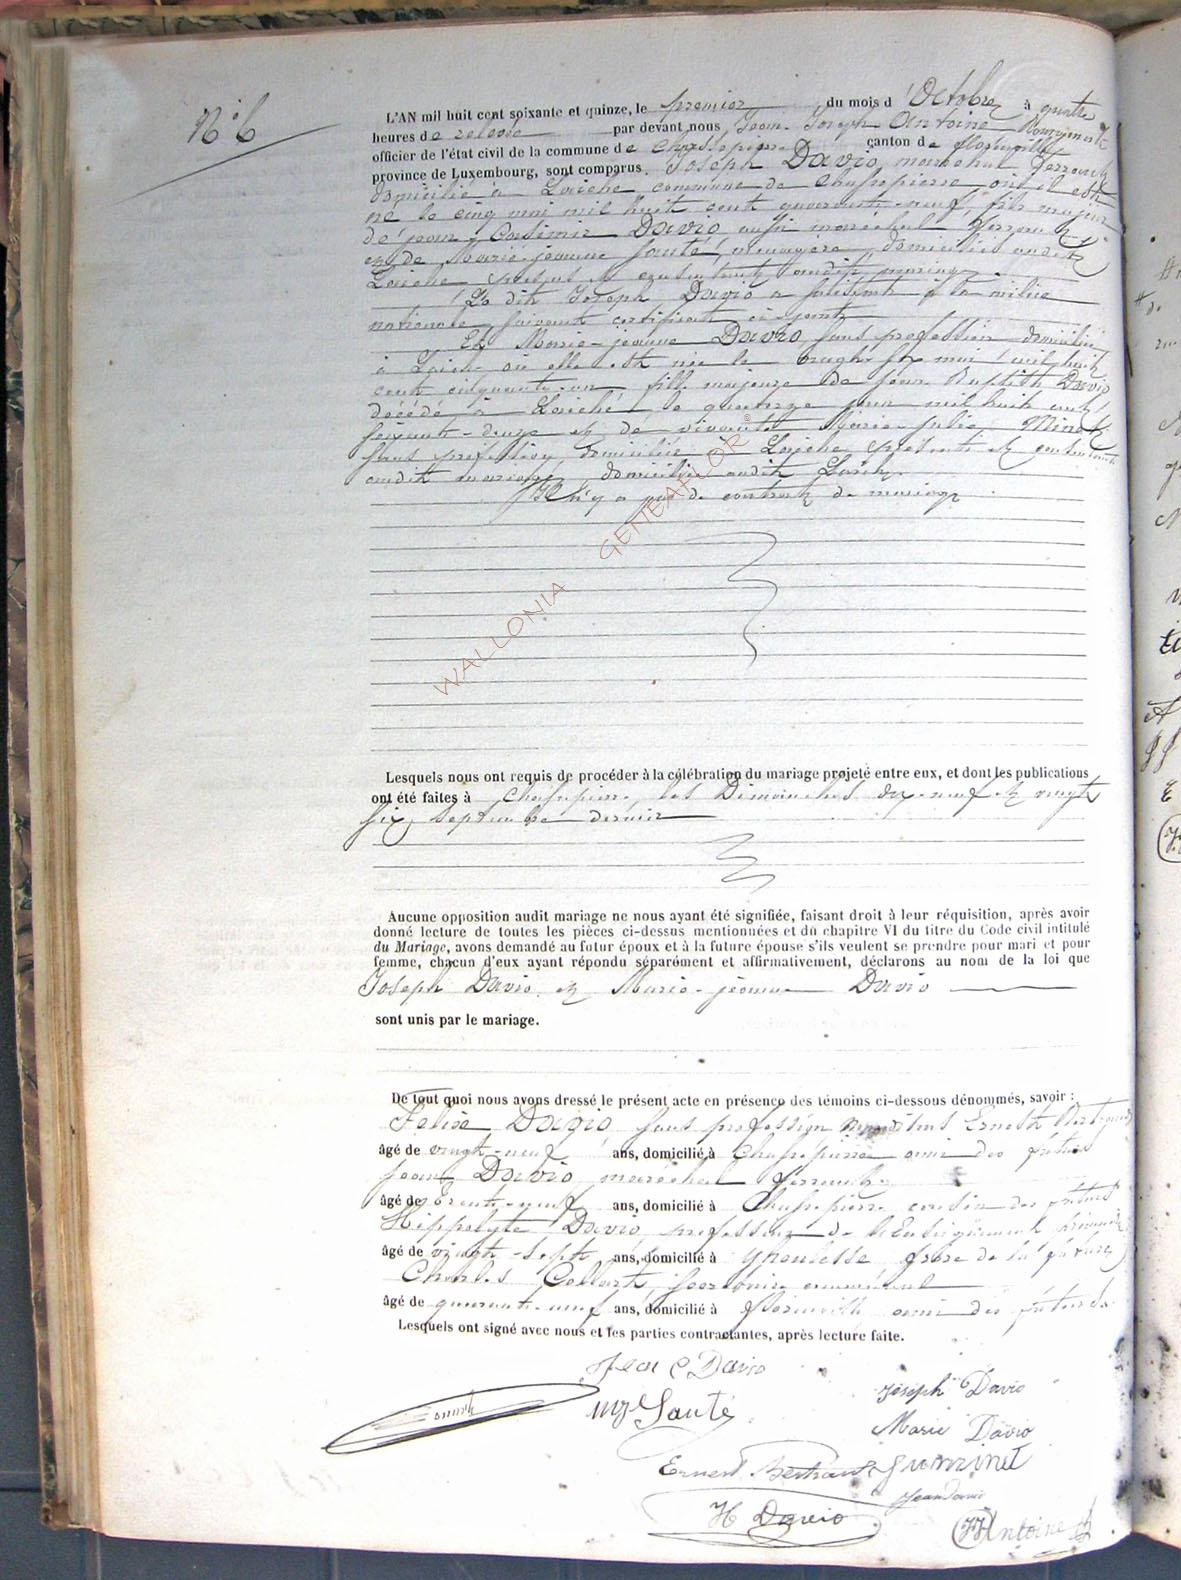 N° 6
L'AN mil huit cent soixante et quinze, le premier du mois d'Octobre à quatre
heures de relevée par devant nous, Jean Joseph Antoine Bourgmestre
officier de l'état civil de la commune de Chassepierre canton de florenville
province de Luxembourg, sont comparus Joseph Davio, maréchal ferrant
domicilié à Laiche commune de Chassepierre, où il est
né le cinq mai mil huit cent quarante-neuf, fils majeur
de jean-Casimir Davio aussi maréchal ferrant
et de Marie-jeanne Santé, ménagère, domiciliés audit
Laiche présens et consentants audit mariage.
Le dit Joseph Davio a satisfait à la milice
nationale suivant certificat ci-joint
Et Marie-jeanne Davio, sans profession domiciliée
à Laiche où elle est née le vingt six mai mil huit
cent cinquante-un, fille majeure de Jean Baptiste Davio
décédé, à Laiche, le quatorze juin mil huit cent
soixante-douze et de vivante Marie-julie Minet
sans profession, domiciliée à Laiche présente et consentante
audit mariage, domiciliée audit Laiche.
Il n'y a pas de contrat de mariage
WALLONIA GENEAFLOR ©
Lesquels nous ont requis de procéder à la célébration du mariage projeté entre eux, et dont les publications
ont été faites à Chassepierre, les Dimanches dix-neuf et vingt
six septembre dernier
Aucune opposition audit mariage ne nous ayant été signifiée, faisant droit à leur réquisition, après avoir
donné lecture de toutes les pièces ci-dessus mentionnées et du chapitre VI du titre du Code civil intitulé
du Mariage, avons demandé au futur époux et à la future épouse s'ils veulent se prendre pour mari et pour
femme, chacun d'eux ayant répondu séparément et affirmativement, déclarons au nom de la loi que
Joseph Davio et Marie-jeanne Davio
sont unis par le mariage.
De tout quoi nous avons dressé le présent acte en présence des témoins ci-dessous dénommés, savoir :
sans profession Ernest Bertrand
âgé de vingt-neuf ans, domicilié à Chassepierre ami des futurs
Jean Davio, maréchal ferrant
âgé de trente-neuf ans, domicilié à Chassepierre cousin des futurs
Hippolyte Davio, professeur de l'Enseignement
âgé de vingt-sept ans, domicilié à frère de la future
Charles Collart,
âgé de quarante-neuf ans, domicilié à florenville ami des futurs
Lesquels ont signé avec nous et les parties contractantes, après lecture faite.
Jean C Davio
Joseph Davio
MJ Santé
Marie Davio
Ernest Bertrand
JMinet
Jean Davio
H Davio
JJ Antoine